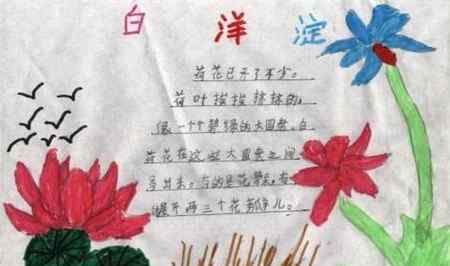 白洋淀
荷花已开了不少。
荷叶挨挨挤挤的,
像一个个碧绿的大圆盘。白
荷花在这些大圆盘之间
冒出来。有的是花骨朵,有
展开两三个花瓣儿。